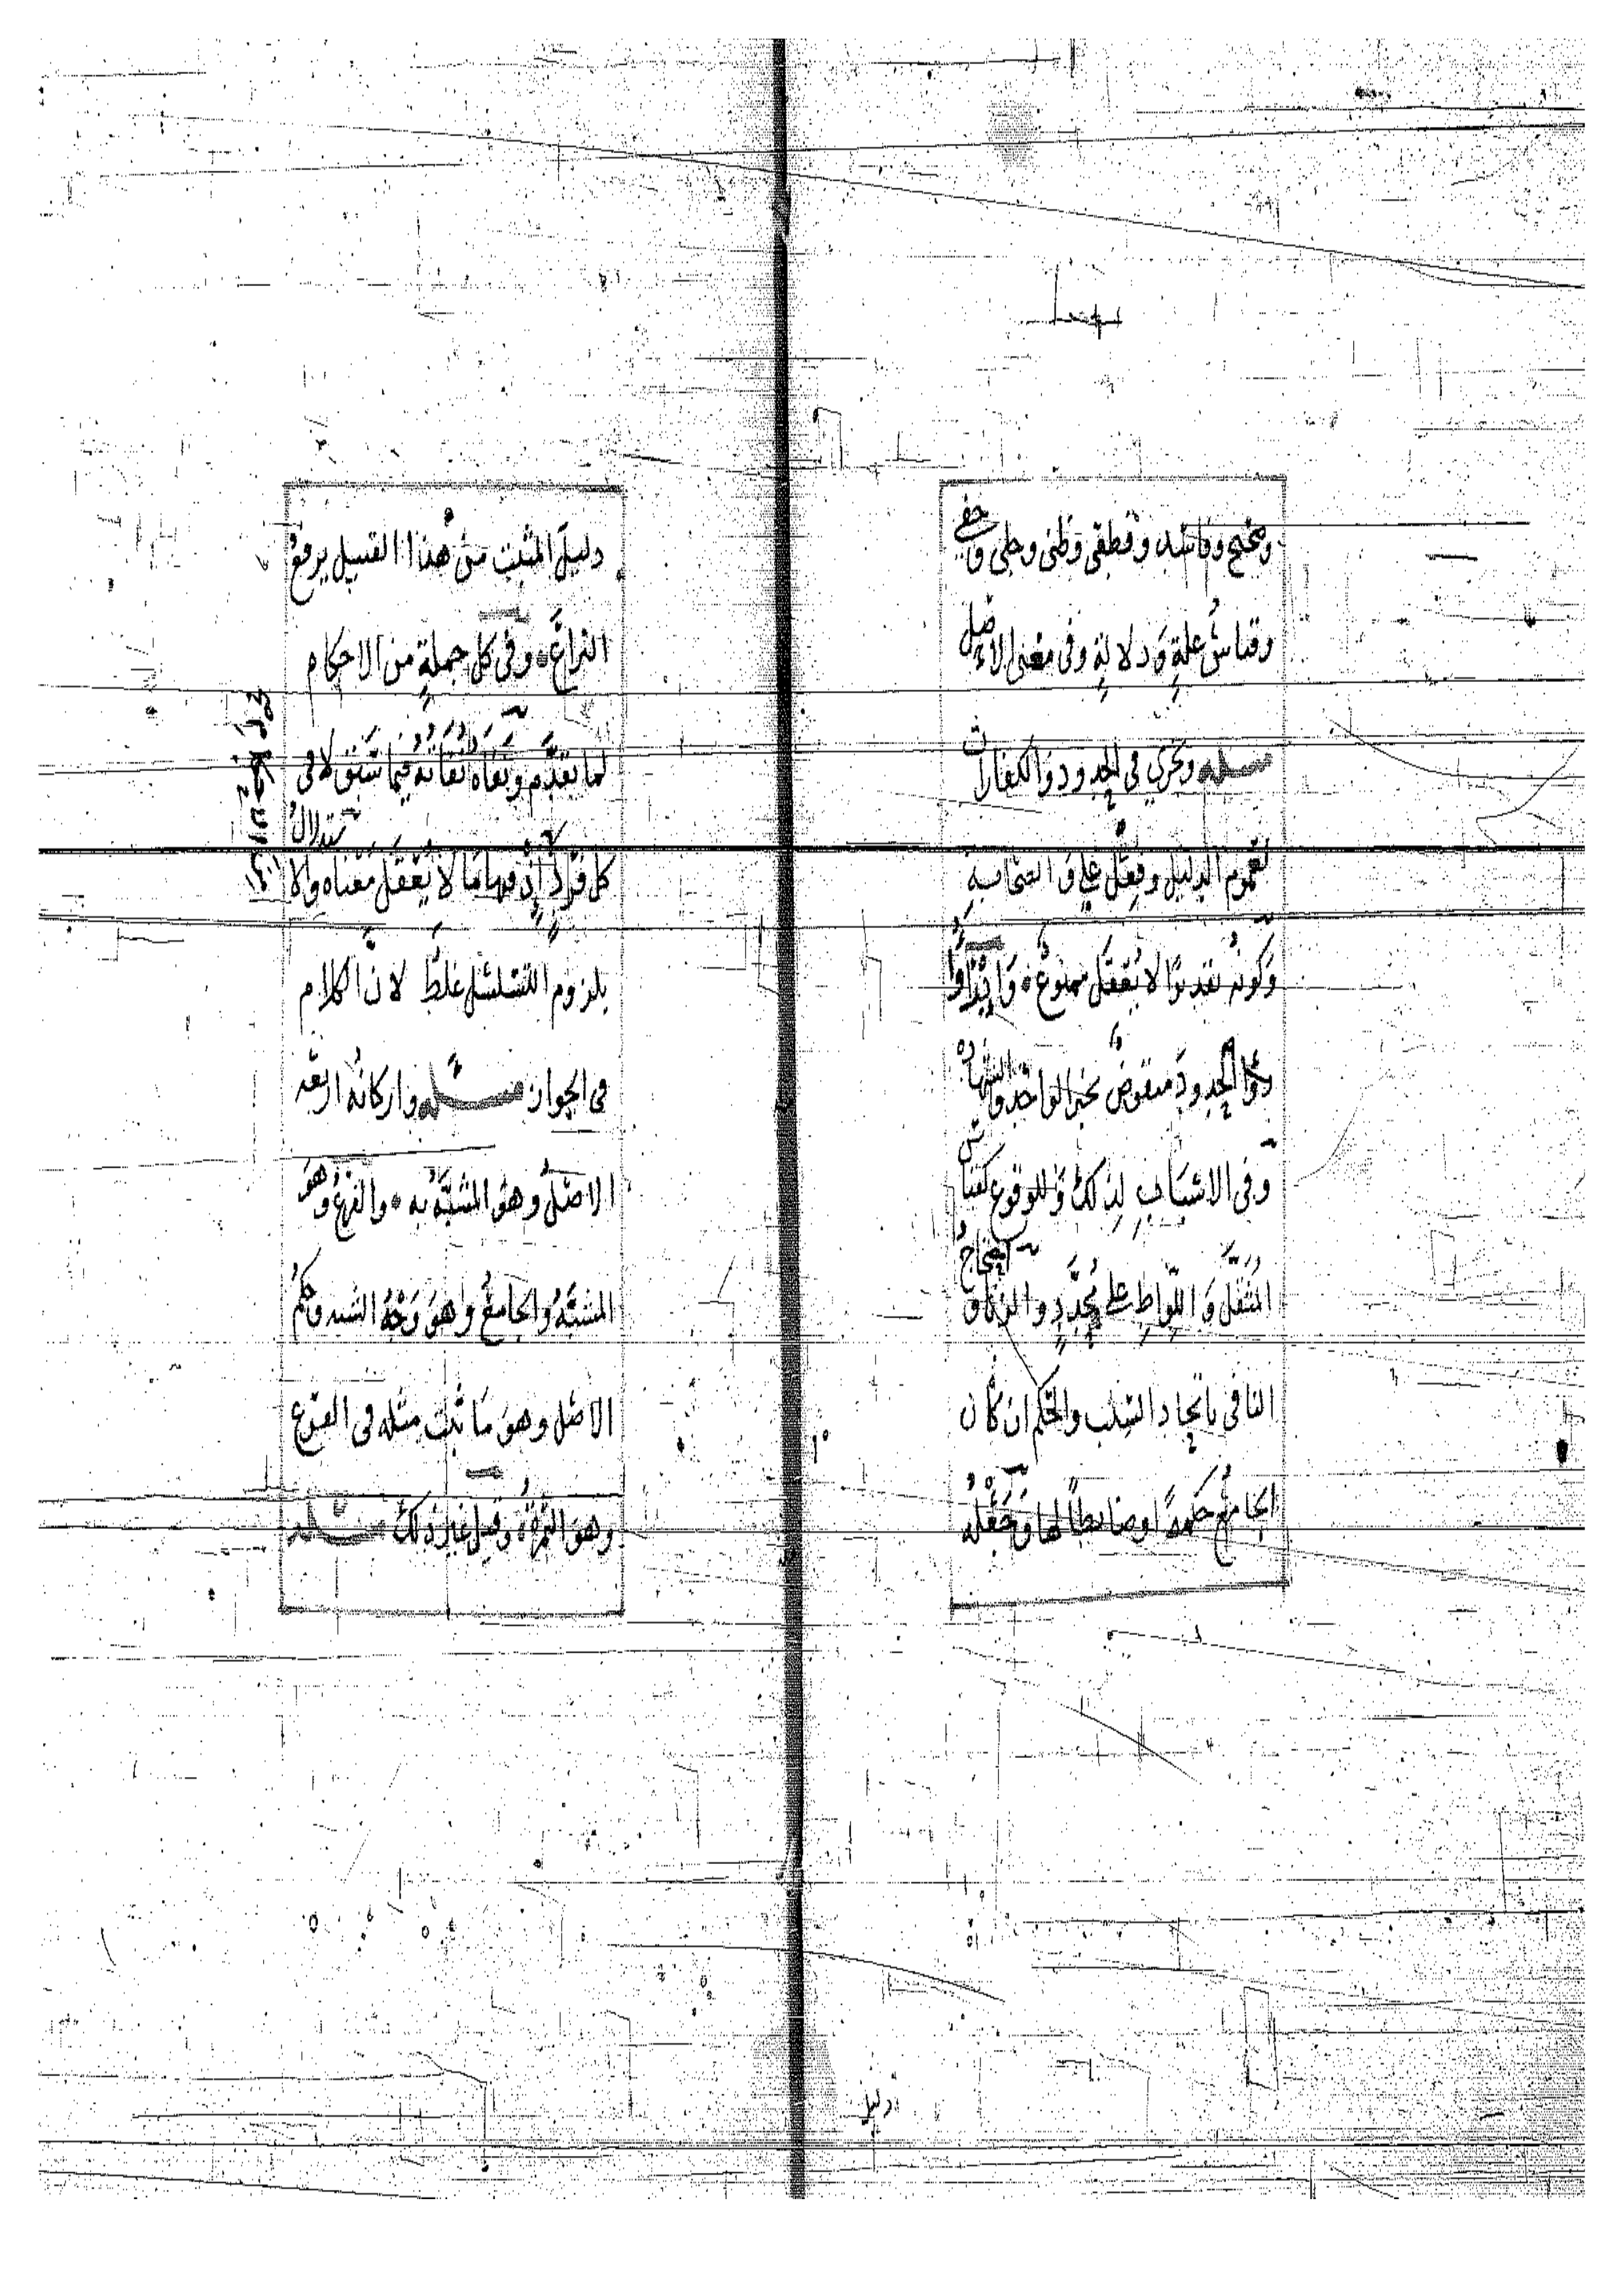 وصحيح وفاسد وقطعي وظني وجلي وخفي
وقياسُ علةٍ وَدلالةٍ وفي معنى الاصل
مسئله وتجري في الحدود والكفارات
لعموم الدليل وفِعْل علي وَالصحابةِ
وَكونُه تقديرًا لا يُعْقَل ممنوعٌ وَ
الحدودَ منقوضٌ بخبر الواحد والشهاده
وَفي الاسْبَابِ لِذلك وَللوقوع كقياس
المُثقَّل وَاللِّواطِ على مُحدَّدٍ والزنا وَاحتجاجُ
النافي باتحاد السَّبَب والحكم ان كان
الجامعُ حكمةً اوضابطًا لها وَجَعْلُهُ
دليل
دليلَ المثبت منْ هذا القبيل يرفعُ
النزاعَ وفي كل جملةٍ من الاحكام
لما تقدَّم وَنَفَاهُ نُفَاتُهُ فيما سَبَق لا في
كل فردٍ اذ فيها مَا لا يُعْقَل مَعْناه والاستدلالُ
بلزوم التسَلسُل غلطٌ لانَّ الكلام
في الجواز مسئله واركانُه اربعه
الاصْلُ وهوَ المشبَّهُ به والفرعُ وهوَ
المشبَّهُ والجامعُ وهوَ وَجْهُ الشبه وحكمُ
الاصْل وهوَ مَا ثبت مثله في الفرع
وهوَ الثمرَةُ وقيل غير ذلك مسئله